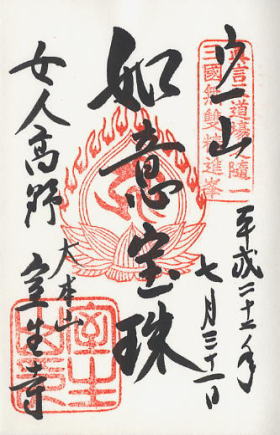 真言三道場之隨一
三國無雙精進峯
宀一山
平成二十二年
七月三十一日
如意宝珠
女人高野
大本山
室生寺